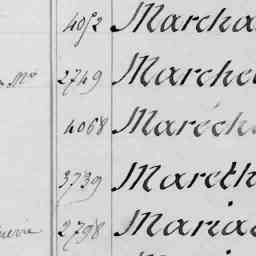 4052 Marcha
n Mre 2749 Marche
4068 Maréch
3739 Mareth
uerre 2798 Maria